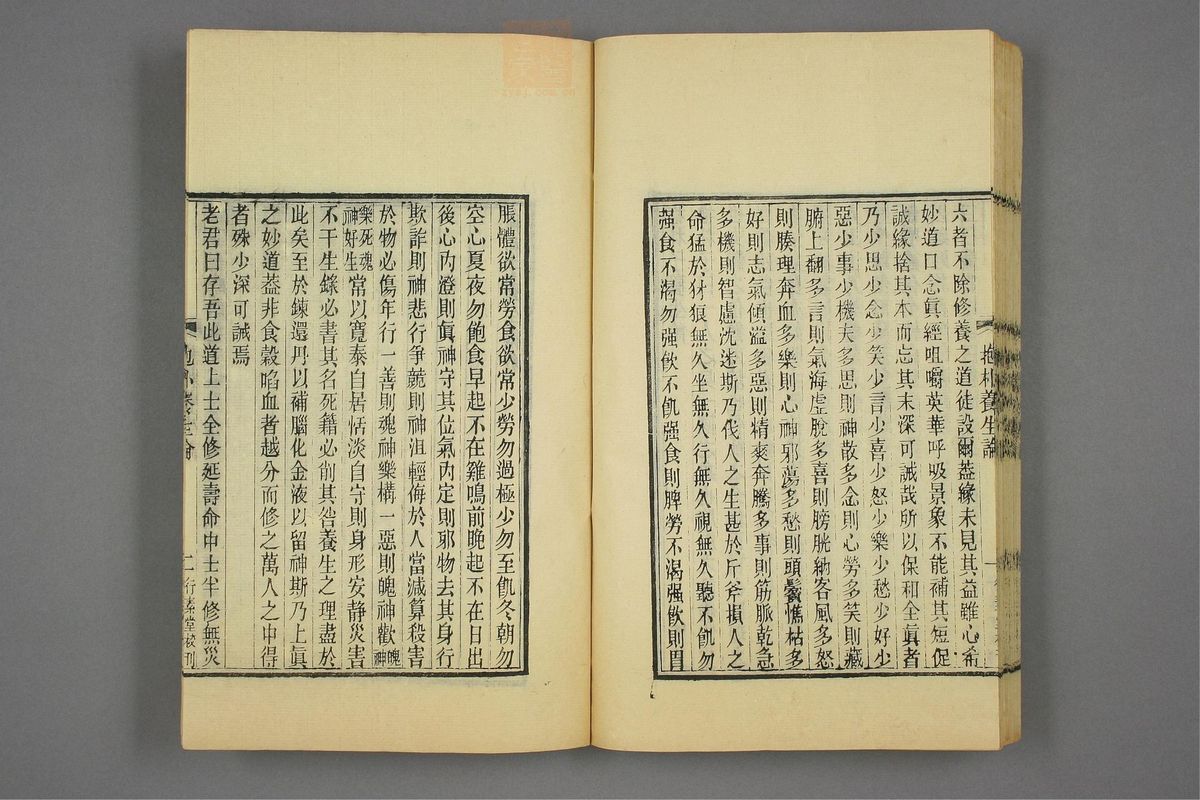 六者不除修養之道徒設爾蓋緣未見其益雖心希
妙道口念眞經咀嚼英華呼吸景象不能補其短促
誠緣捨其本而忘其末深可誡哉所以保和全眞者
乃少思少念少笑少言少喜少怒少樂少愁少好少
惡少事少機夫多思則神散多念則心勞多笑則藏
腑上翻多言則氣海虛脫多喜則膀胱納客風多怒
則腠理奔血多樂則心神邪蕩多愁則頭鬢憔枯多
好則志氣傾溢多惡則精爽奔騰多事則筋脈乾急
多機則智慮沈迷斯乃伐人之生甚於斤斧損人之
命猛於犲狼無久坐無久行無久視無久聽不飢勿
强食不渴勿强飮不飢强食則脾勞不渴强飮則胃
抱朴養生論
一
脹體欲常勞食欲常少勞勿過極少勿至飢冬朝勿
空心夏夜勿飽食早起不在雞鳴前晚起不在日出
後心內澄則眞神守其位氣內定則邪物去其身行
欺詐則神悲行爭競則神沮輕侮於人當減算殺害
於物必傷年行一善則魂神樂構一惡則魄神歡魄神
樂死魂神好生常以寬泰自居恬淡自守則身形安靜災害
不干生錄必書其名死籍必削其咎養生之理盡於
此矣至於鍊還丹以補腦化金液以留神斯乃上眞
之妙道蓋非食穀啗血者越分而修之萬人之中得
者殊少深可誡焉
老君曰存吾此道上士全修延壽命中士半修無災
二
行素堂校刊